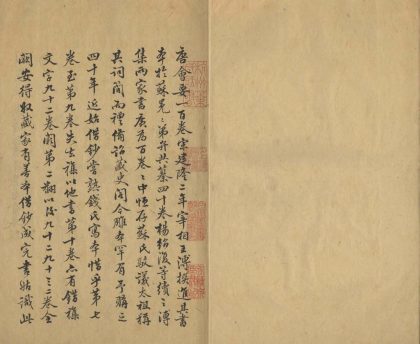 唐會要一百卷宋建隆二年宰相王溥撰進其書
本於蘇冕冕弟弁共纂四十卷楊紹復等續之溥
集兩家書廣為百卷卷中恒存蘇氏駁議太祖稱
其詞簡而禮備詔藏史閣今雕本罕有予購之
四十年近始借鈔常熟錢氏寫本惜乎第七
卷至第九卷失去雜以他書第十卷亦有錯雜
文字九十二卷闕第二翻以後九十三九十四二卷全
闕安得收藏家有善本借鈔成完書姑識此